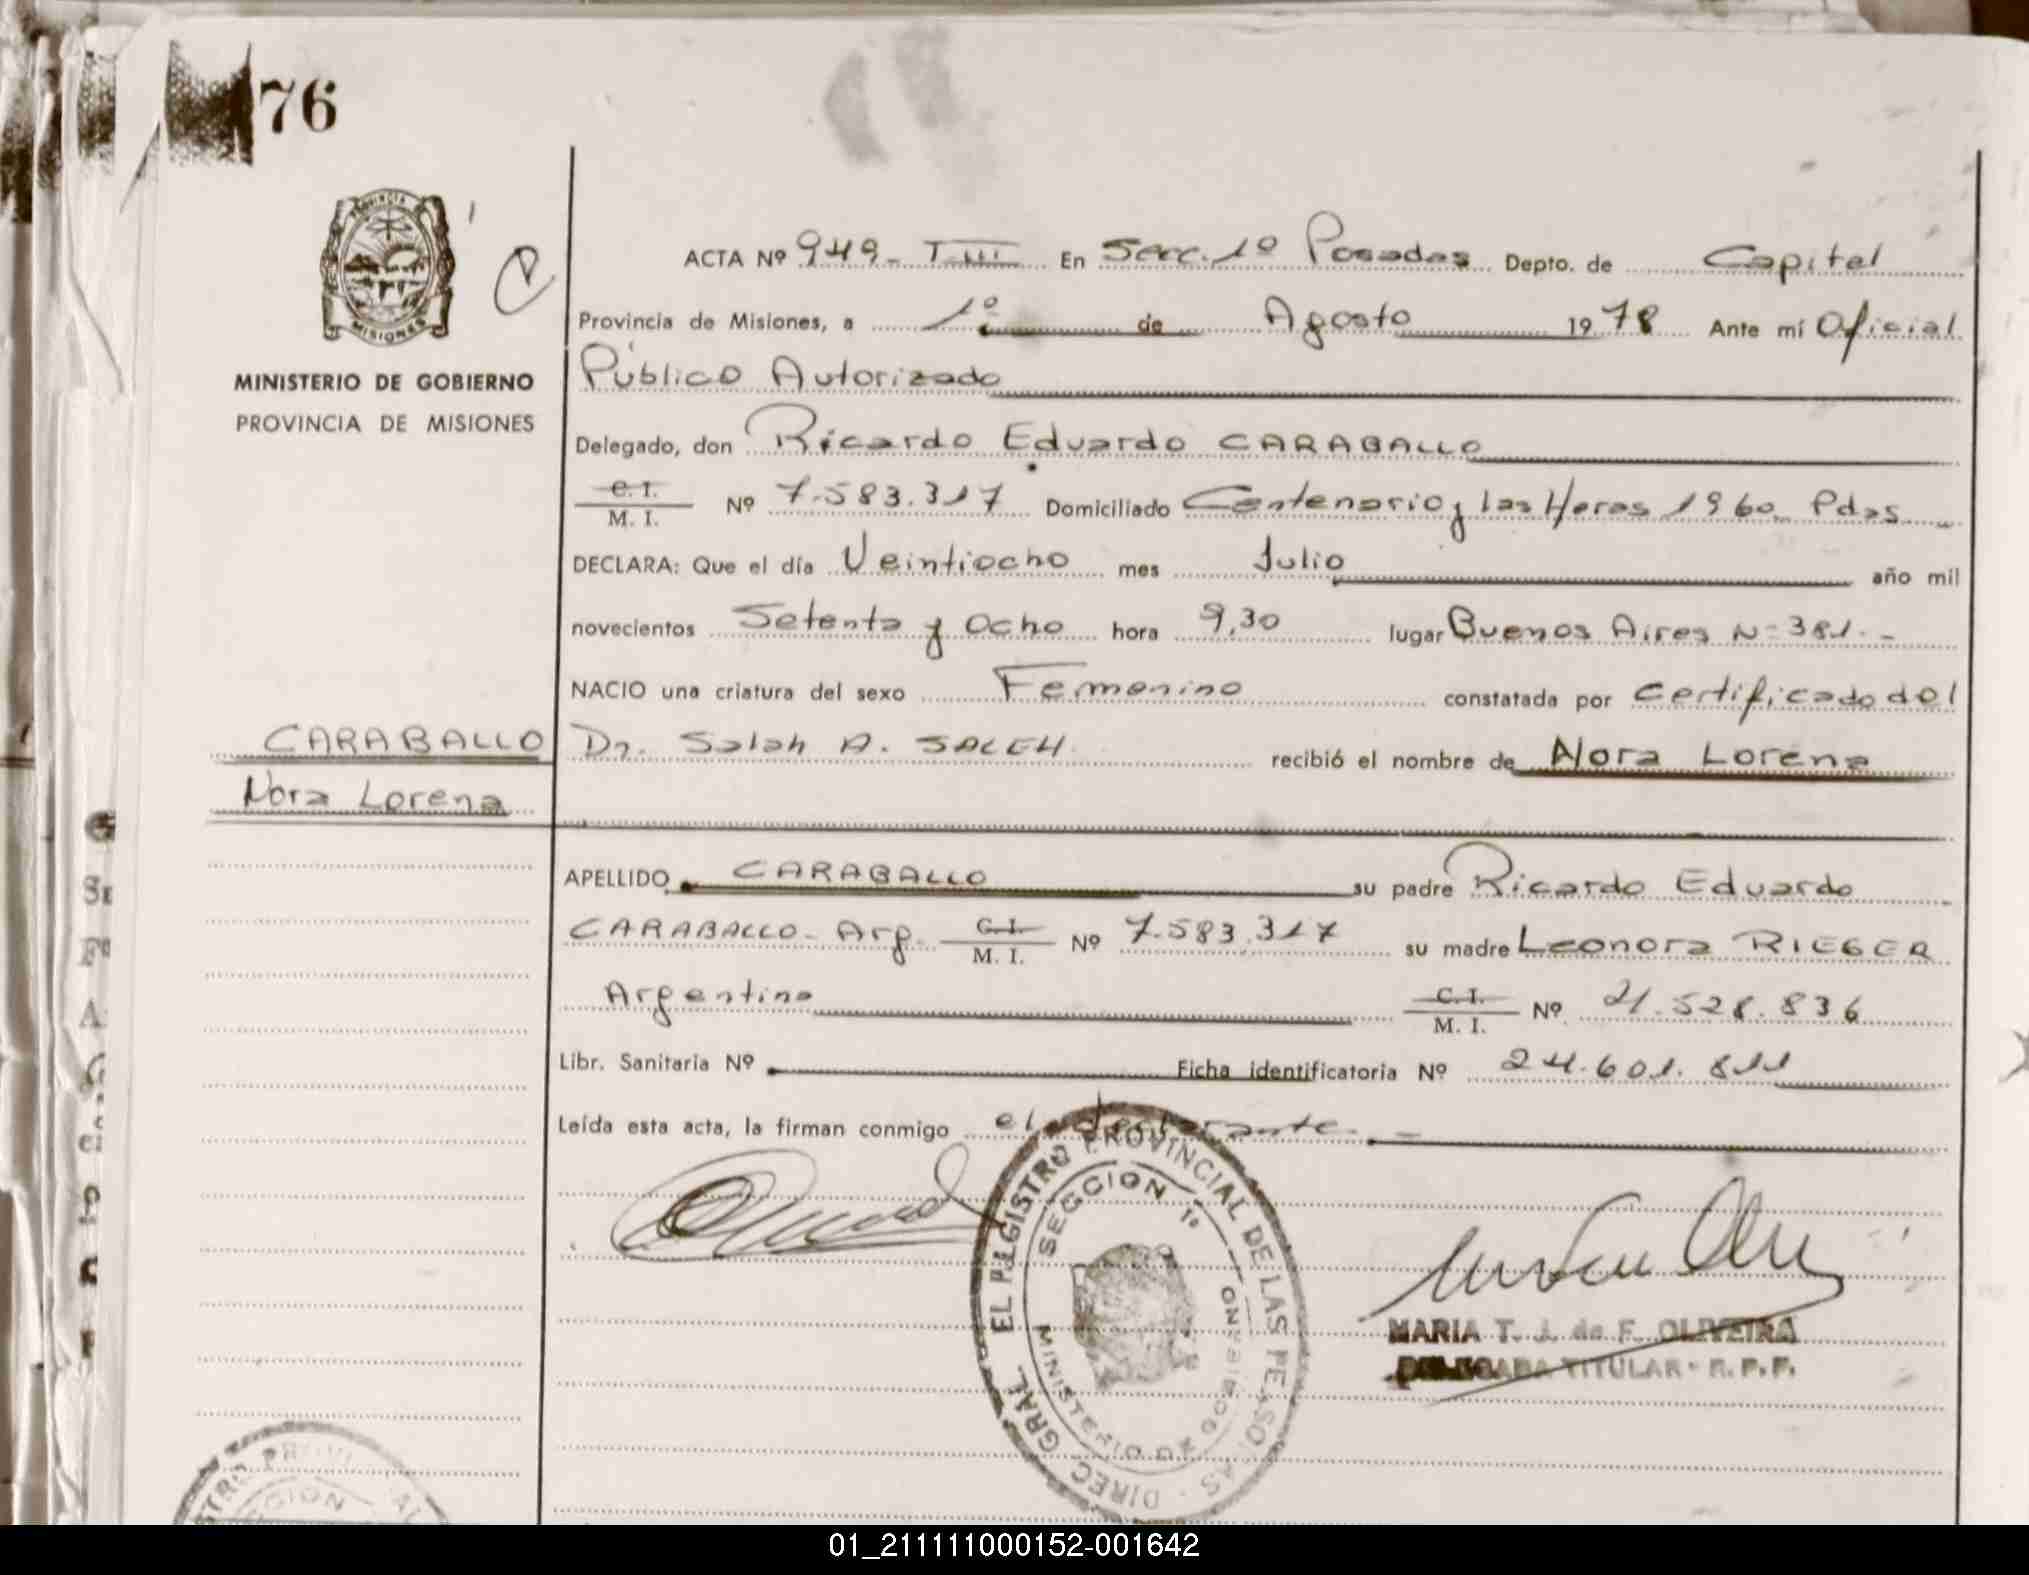 76
PROVINCIA
MISIONES
MINISTERIO DE GOBIERNO
PROVINCIA DE MISIONES
CARABALLO
Nora Lorena
ACTA Nº 949- T-III En Secc. 1º Posadas Depto. de Capital
Provincia de Misiones, a 1º de Agosto 1978 Ante mí Oficial
Público Autorizado
Delegado, don Ricardo Eduardo CARABALLO
C. I.
M. I. Nº 7.583.317 Domiciliado Centenario y las Heras 1960 Pdas
DECLARA: Que el día Veintiocho mes Julio año mil
novecientos Setenta y Ocho hora 9,30 lugar Buenos Aires Nº 381.-
NACIO una criatura del sexo Femenino constatada por certificado del
Dr. Salah A. SALEH recibió el nombre de Nora Lorena
APELLIDO CARABALLO su padre Ricardo Eduardo
CARABALLO- Arg. C. I. M. I. Nº 7.583.317 su madre Leonora RIEGER
Argentina C. I. M. I. Nº 21.528.836
Libr. Sanitaria Nº Ficha identificatoria Nº 24.601.811
Leída esta acta, la firman conmigo el declarante.-
DIREC. GRAL. EL REGISTRO PROVINCIAL DE LAS PERSONAS
SECCION 1º
MINISTERIO DE GOBIERNO
MARIA T. J. de F. OLIVEIRA
DELEGADA TITULAR - R. P. P.
01_211111000152-001642